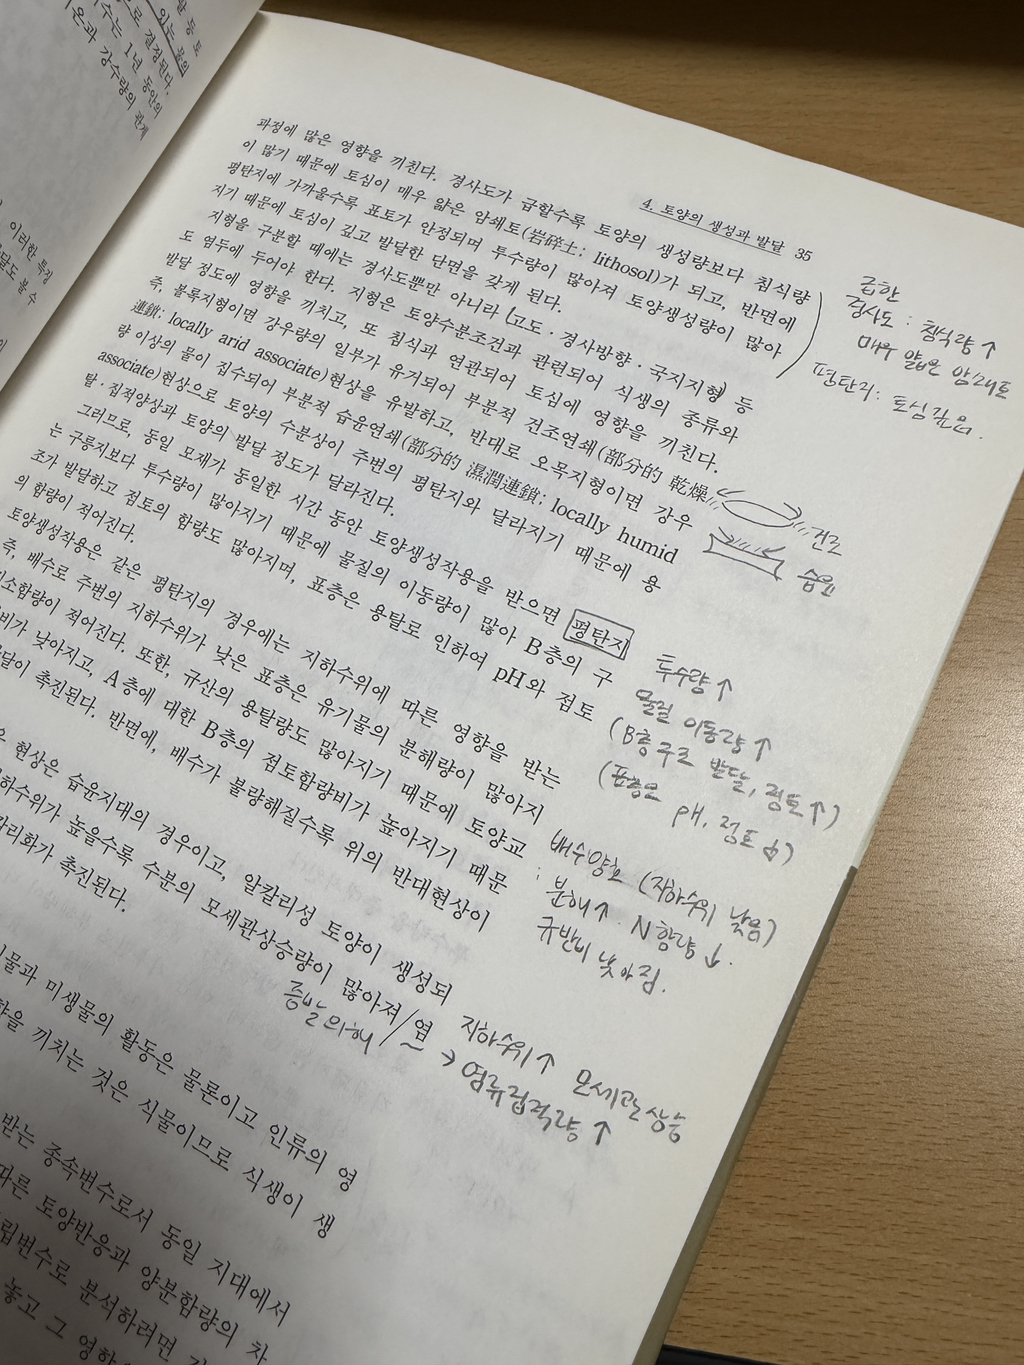 달 동 토
있는 물의
로 결정된다.
수는 1년 동안의
기온과 강수량의 관계
이러한 특징
달도 볼 수
4. 토양의 생성과 발달 35
과정에 많은 영향을 끼친다. 경사도가 급할수록 토양의 생성량보다 침식량
이 많기 때문에 토심이 매우 얇은 암쇄토(岩碎土; lithosol)가 되고, 반면에
평탄지에 가까울수록 표토가 안정되며 투수량이 많아져 토양생성량이 많아
지기 때문에 토심이 깊고 발달한 단면을 갖게 된다.
지형을 구분할 때에는 경사도뿐만 아니라 고도·경사방향·국지지형 등
도 염두에 두어야 한다. 지형은 토양수분조건과 관련되어 식생의 종류와
발달 정도에 영향을 끼치고, 또 침식과 연관되어 토심에 영향을 끼친다.
즉, 볼록지형이면 강우량의 일부가 유거되어 부분적 건조연쇄(部分的 乾燥
連鎖; locally arid associate)현상을 유발하고, 반대로 오목지형이면 강우
량 이상의 물이 집수되어 부분적 습윤연쇄(部分的 濕潤連鎖; locally humid
associate)현상으로 토양의 수분상이 주변의 평탄지와 달라지기 때문에 용
탈·집적양상과 토양의 발달 정도가 달라진다.
그러므로, 동일 모재가 동일한 시간 동안 토양생성작용을 받으면 평탄지
는 구릉지보다 투수량이 많아지기 때문에 물질의 이동량이 많아 B층의 구
조가 발달하고 점토의 함량도 많아지며, 표층은 용탈로 인하여 pH와 점토
의 함량이 적어진다.
토양생성작용은 같은 평탄지의 경우에는 지하수위에 따른 영향을 받는
즉, 배수로 주변의 지하수위가 낮은 표층은 유기물의 분해량이 많아지
소함량이 적어진다. 또한, 규산의 용탈량도 많아지기 때문에 토양교
비가 낮아지고, A층에 대한 B층의 점토함량비가 높아지기 때문
달이 촉진된다. 반면에, 배수가 불량해질수록 위의 반대현상이
현상은 습윤지대의 경우이고, 알칼리성 토양이 생성되
하수위가 높을수록 수분의 모세관상승량이 많아져 염
칼리화가 촉진된다.
물과 미생물의 활동은 물론이고 인류의 영
향을 끼치는 것은 식물이므로 식생이 생
받는 종속변수로서 동일 지대에서
따른 토양반응과 양분함량의 차
립변수로 분석하려면
놓고 그 영향
급한
경사도 : 침식량↑
매우 얇은 암쇄토
평탄지: 토심깊음.
건조
습윤
투수량↑
물질 이동량↑
(B층 구조 발달, 점토↑)
(표층은 pH, 점토↓)
배수양호 (지하수위 낮음)
: 분해↑ N함량↓.
규반비 낮아짐.
증발의해
지하수위↑ 모세관상승
→ 염류집적량↑